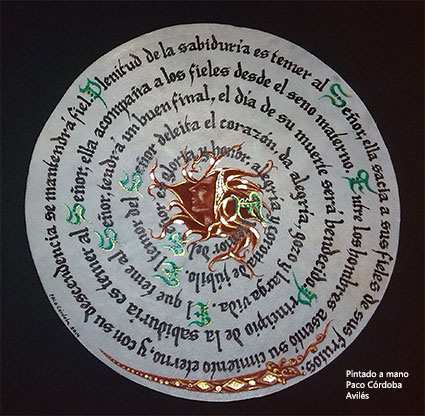 El temor del Señor es gloria y honor, alegria y corona de júbilo. El temor del Señor deleita el corazón, da alegria, gozo y larga vida. El que teme al Señor, tendrá un buen final, el día de su muerte será bendecido. Principio de la sabiduria es temer al Señor, ella acompaña a los fieles desde el seno materno. Entre los hombres asentó su cimiento eterno, y con su descendencia se mantendrá fiel. Plenitud de la sabiduria es temer al Señor, ella sacia a sus fieles de sus frutos.
Pintado a mano
Paco Córdoba
Avilés